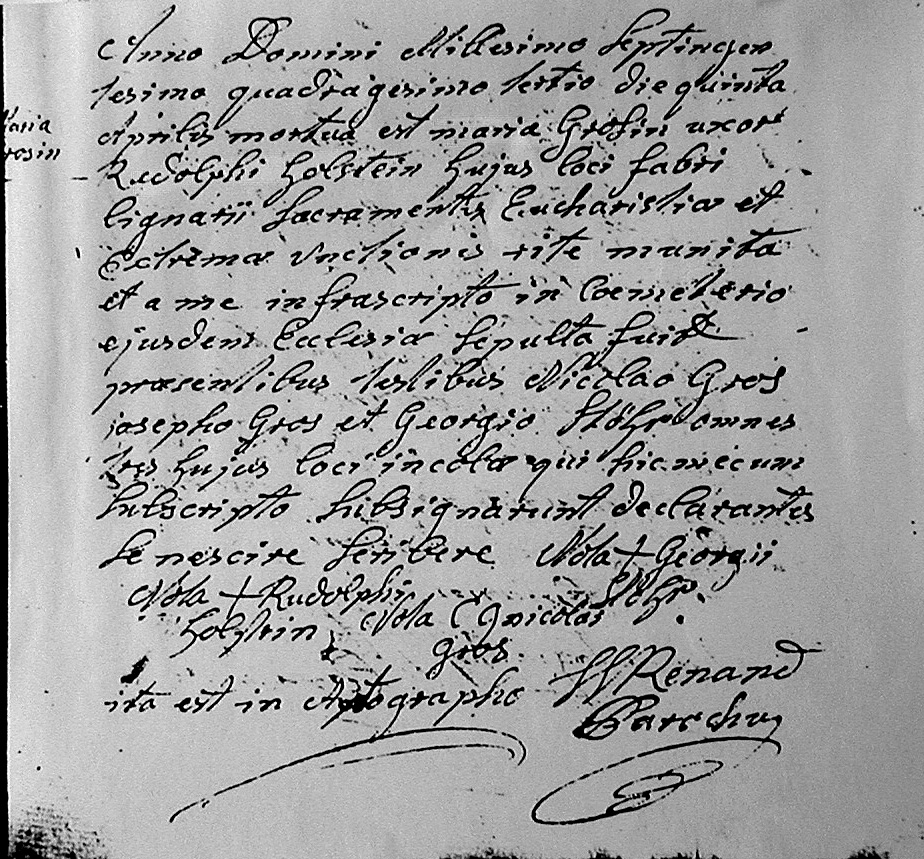 Anno Domini Millesimo Septingen
tesimo quadragesimo tertio die quinta
Aprilis mortua est maria Grosin uxor
Maria
Grosin
Rudolphi Holstein hujus loci fabri
lignarii Sacramentis Eucharistiæ et
Extremæ unctionis rite munita
et a me infrascripto in Coemeterio
ejusdem Ecclesiæ Sepulta fuit
præsentibus testibus Nicolao Gros
josepho Gros et Georgio Stöhr omnes
tres hujus loci incolæ qui hic mecum
subscripto subsignarunt declarantes
se nescire scribere Nota + Georgii
Nota + Rudolphi Stöhr.
Holstein Nota nicolas
gros
ita est in Autographo Renand
Parochus